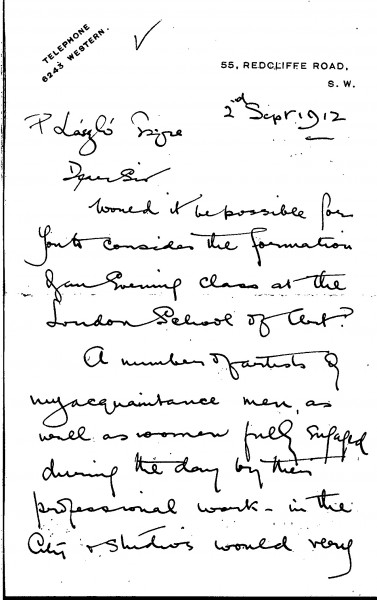 TELEPHONE
6243 WESTERN.
55, REDCLIFFE ROAD,
S. W.
2nd Sept. 1912
P László Esqre
Dear Sir
Would it be possible for
you to consider the formation
of an Evening class at the
London School of Art?
A number of artists of
my acquaintance men, as
well as women fully engaged
during the day by their
professional work - in the
City & studios would very